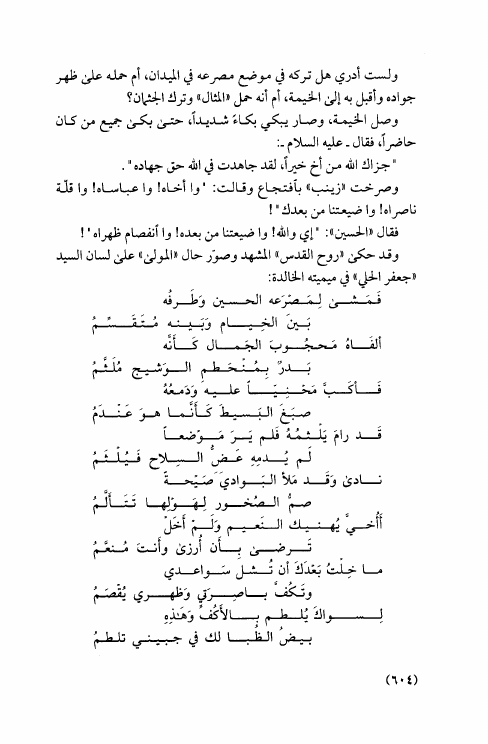 ولست أدري هل تركه في موضع مصرعه في الميدان، أم حمله على ظهر
جواده وأقبل به إلى الخيمة، أم أنه حمل «المثال» وترك الجثمان؟
وصل الخيمة، وصار يبكي بكاءً شديداً، حتىٰ بكىٰ جميع من كان
حاضراً، فقال ـ عليه السلام ـ:
"جزاك الله من أخ خيراً، لقد جاهدت في الله حق جهاده".
وصرخت «زينب» بأفتجاع وقالت: "وا أخاه! وا عباساه! وا قلّة
ناصراه! وا ضيعتنا من بعدك"!
فقال «الحسين»: "إي والله! وا ضيعتنا من بعده! وا أنفصام ظهراه"!
وقد حكىٰ «روح القدس» المشهد وصوّر حال «المولىٰ» علىٰ لسان السيد
«جعفر الحلي» في ميميته الخالدة:
فَمَشَىٰ لِمَصْرَعه الحسين وَطَرفُه
بَينَ الخِيام وَبَينه مُتَقَسِّمُ
ألفاهُ مَحجُوبَ الجَمال كَأنَّه
بَدرٌ بِمُنْحَطم الوَشيج مُلَثَّمُ
فَأكَبَّ مَحْنِيّاً عليه وَدَمعُهُ
صبَغَ البَسيطَ كَأنَّما هوَ عَندَمُ
قد رامَ يَلْثِمُهُ فلم يَرَ مَوْضعاً
لَم يُدمِهِ عَضُّ السِلاح فَيُلْثَمُ
نادىٰ وَقد مَلأ البَوادِيَ صَيْحةً
صمُّ الصُخور لِهَولِها تَتَألَّمُ
أأُخيَّ يُهنِيك النَعيم وَلَمْ أخَلْ
تَرضىٰ بأن أُرزىٰ وأنتَ مُنعَّمُ
ما خِلْتُ بَعْدَكَ أن تُشل سَواعدي
وتَكُفَّ باصِرَتي وَظهري يُقْصَمُ
لِسواكَ يُلطم بالأكُفِّ وَهَذهِ
بيضُ الظُبا لك في جبيني تلطمُ
(٦٠٤)